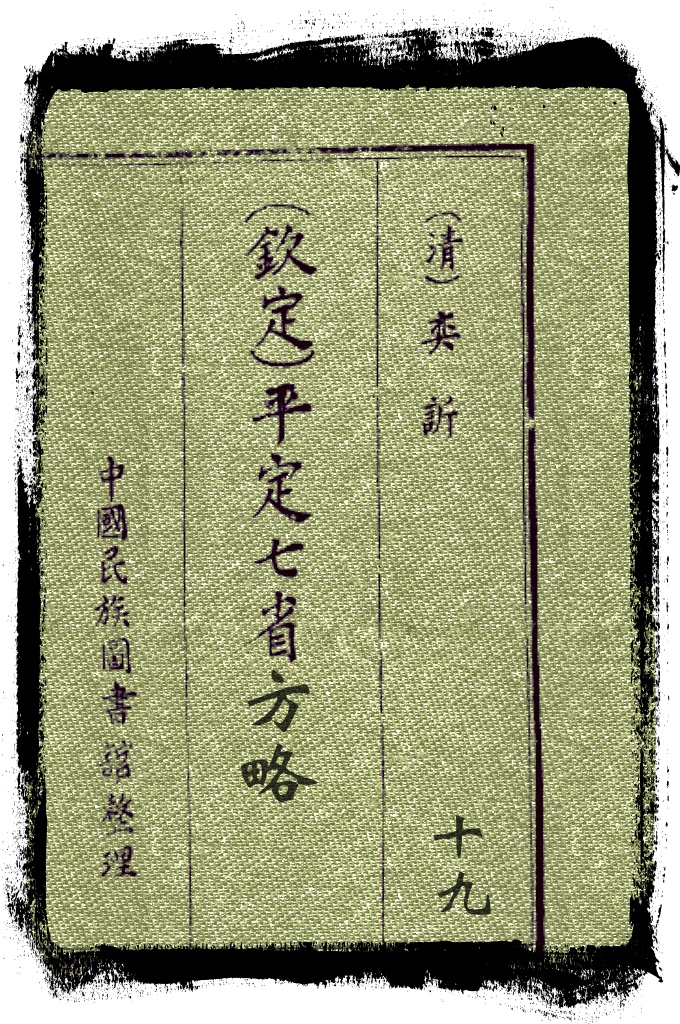 （清）奕訢
十九
（欽定）平定七省方略
中國民族圖書館整理